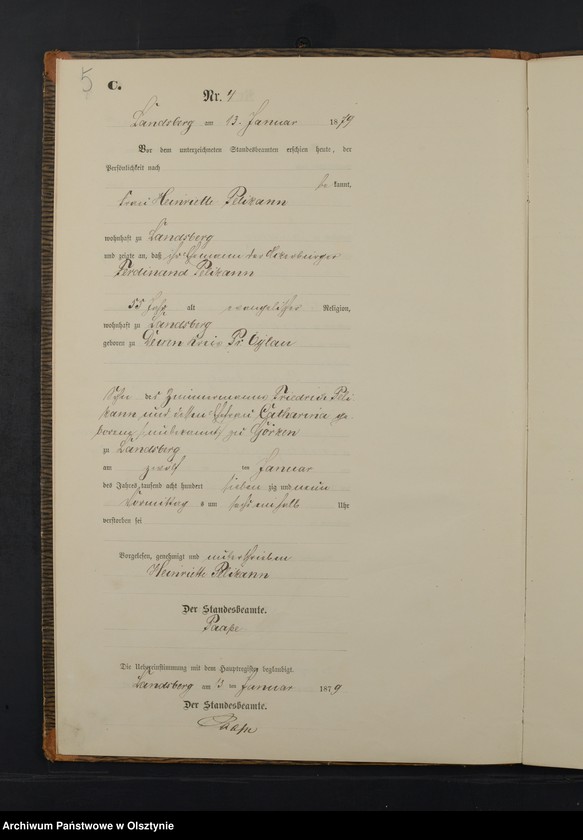 5
C.
Nr. 4
Landsberg am 13. Januar 1879
Vor dem unterzeichneten Standesbeamten erschien heute, der
Persönlichkeit nach
be kannt,
Frau Heinriette Pelikann
wohnhaft zu Landsberg
und zeigte an, daß ihr Ehemann der Ackerbürger
Ferdinand Pelikann
55 Jahr alt evangelischer Religion,
wohnhaft zu Landsberg
geboren zu Kreis Pr. Eylau
Sohn des Zimmermanns Friedrich Peli
kann und dessen Ehefrau Catharina ge
borene unbekannt zu Görken
zu Landsberg
am zwölf ten Januar
des Jahres tausend acht hundert sieben zig und neun
Vormittag s um Uhr
verstorben sei
Vorgelesen, genehmigt und unterschrieben
Heinriette Pelikann
Der Standesbeamte.
Die Uebereinstimmung mit dem Hauptregister beglaubigt.
Landsberg am 13 ten Januar 1879
Der Standesbeamte.
Archiwum Państwowe w Olsztynie